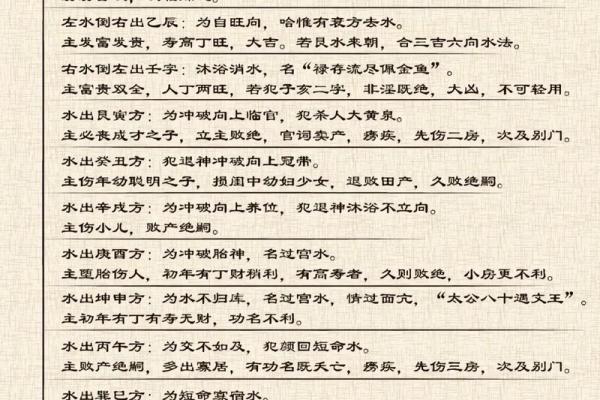 左水倒右出乙辰：为自旺向，哈惟有衰方去水。
主发富发贵，寿高丁旺，大吉。若艮水来朝，合三吉六向水法。
右水倒左出壬字：沐浴消水，名“禄存流尽佩金鱼”。
主富贵双全，人丁两旺，若犯子亥二字，非淫既绝，大凶，不可轻用。
水出艮寅方：为冲破向上临官，犯杀人大黄泉。
主必丧成才之子，立主败绝，官词卖产，痨疾，先伤二房，次及别门。
水出癸丑方：犯退神冲破向上冠带。
主伤年幼聪明之子，损闺中幼妇少女，退败田产，久败绝嗣。
水出辛戌方：为冲破向上养位，犯退神沐浴不立向。
主伤小儿，败产绝嗣。
水出庚酉方：为冲破胎神，名过宫水。
主堕胎伤人，初年有丁财稍利，有高寿者，久则败绝，小房更不利。
水出坤申方：为水不归库，名过宫水，情过面亢，“太公八十遇文王”。
主初年有丁有寿无财，功名不利。
水出丙午方：为交不如及，犯颜回短命水。
主败产绝嗣，多出寡居，有功名既夭亡，痨疾，先伤三房，次及别门。
水出巽巳方：为短命寡宿水。